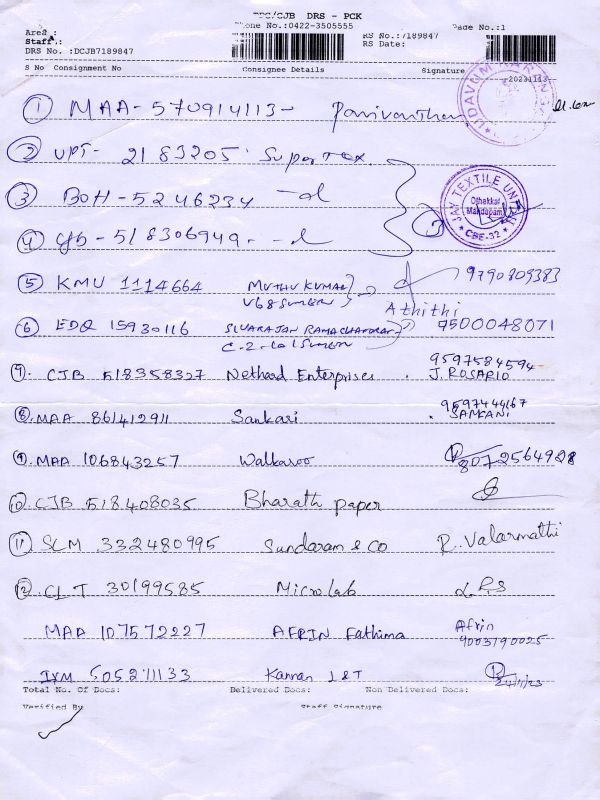 /CJB DRS - PCK
Phone No.:0422-3505555
Page No.:1
Area :
Staff.:
DRS No. :DCJB7189847
RS No.:7189847
RS Date:
S No Consignment No Consignee Details Signature
20231113
① MAA-570914113-
② UPT- 2183205 Supertex.
③ BOH-5246234 -d
④ CJB-518306949. -d
JAY TEXTILE UNIT
Othakkal
Mandapam
* CBE-32 *
⑤ KMU 1114664 MUTHU KUMAR 9790809383
V68 SUMERU
Athithi
⑥ EDQ 15930116 SIVARAJAN RAMACHANDRAN 9500048071
C-2-601 SUMERU
9597584594
CJB 518358327 Nethard Enterprises . J. ROSARIO
9597444167
⑧ MAA 861412911 Sankari . SANKARI
⑨ MAA 106843257 Walkaroo 8072564928
⑩ CJB 518408035 Bharath paper
⑪ SLM 332480995 Sundaram & CO R. Valarmathi
⑫ CLT 30199585 Micro lab
Afrin
MAA 107572227 AFRIN Fathima 9003790025
IXM 505271133 Kannan L&T
24/11/23
Total No. Of Docs: Delivered Docs: Non Delivered Docs:
Verified By Staff Signature